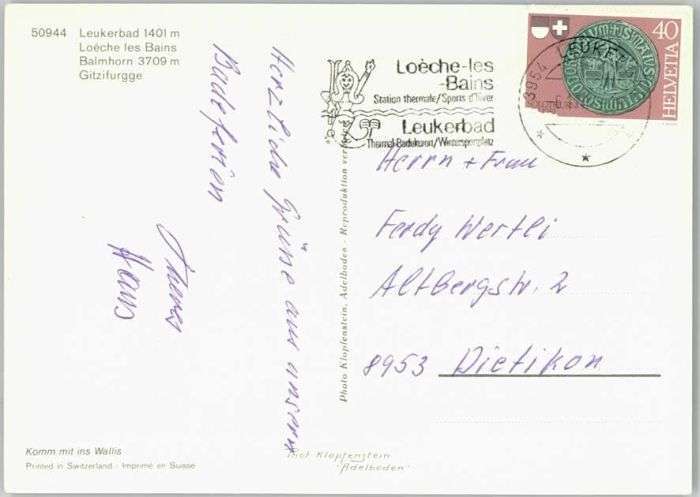 50944 Leukerbad 1401 m
Loéche les Bains
Balmhorn 3709 m
Gitzifurgge
Herzliche Grüsse aus unsern
Badeferien
Hans
Komm mit ins Wallis
Printed in Switzerland - Imprimé en Suisse
Photo Klopfenstein, Adelboden - Reproduktion
Klopfenstein
Adelboden
Loèche-les
-Bains
Station thermale/Sports d'hiver
Leukerbad
Thermal-Badekuren/Wintersportplatz
3954 LEUKE
40
HELVETIA
Herrn + Frau
Ferdy Wertli
Altbergstr. 2
8953 Dietikon